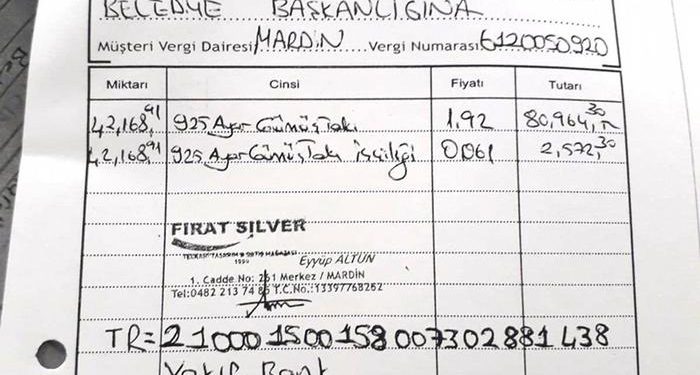 BELEDİYE BAŞKANLIĞINA
Müşteri Vergi Dairesi MARDİN Vergi Numarası 6120050920
Miktarı Cinsi Fiyatı Tutarı
42,168,91 925 Ayar Gümüş Takı 1,92 80,964,30
42,168,91 925 Ayar Gümüş Takı İşçiliği 0,061 2,572,30
FIRAT SILVER
TELKARİ TASARIM & SATIŞ MAĞAZASI
1999 Eyyüp ALTUN
1. Cadde No: 261 Merkez / MARDİN
Tel:0482 213 74 85 T.C.No.:13397768262
TR=210001500158007302881438
Vakıf Bank